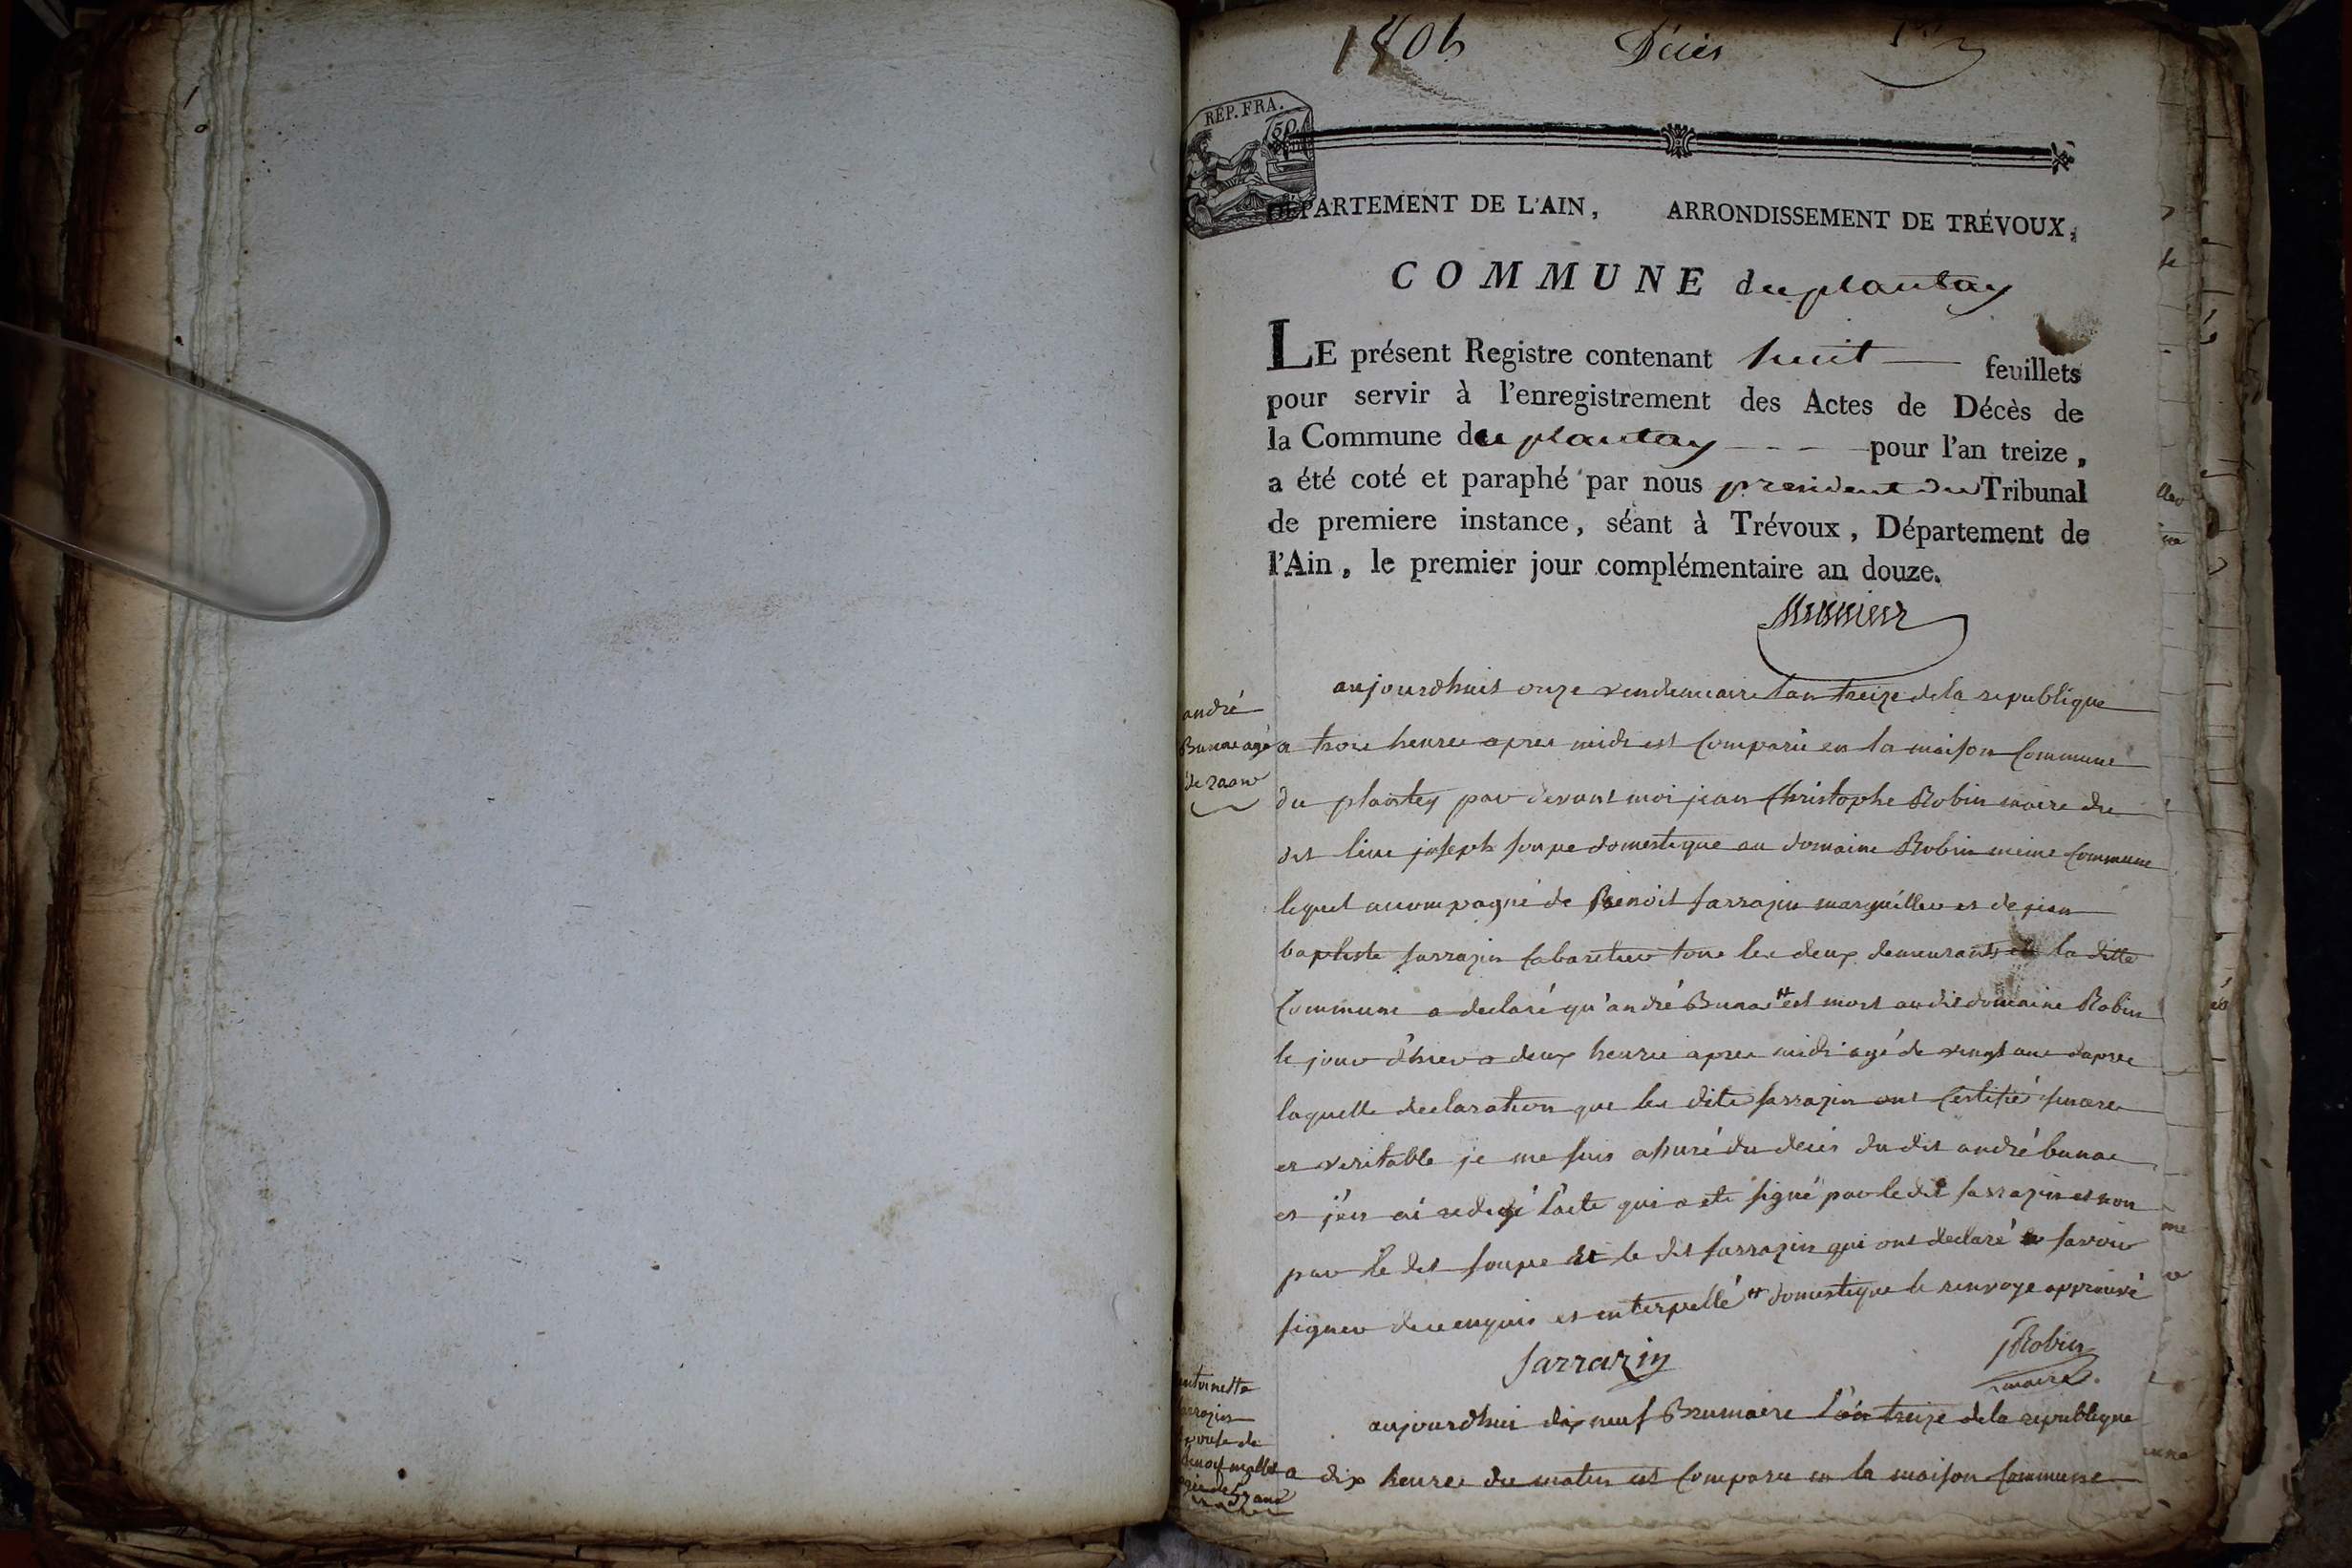 1806 Décès 1er
REP. FRA.
50
DÉPARTEMENT DE L'AIN, ARRONDISSEMENT DE TRÉVOUX,
COMMUNE du plantay
LE présent Registre contenant huit feuillets
pour servir à l'enregistrement des Actes de Décès de
la Commune du plantay pour l'an treize,
a été coté et paraphé par nous president du Tribunal
de premiere instance, séant à Trévoux, Département de
l'Ain, le premier jour complémentaire an douze.
andré
Bunae agé
de 20 ans
aujourdhuit onze vendemiaire l'an treize de la republique
a trois heures apres midi est comparu en la maison commune
du plantey par devant moi jean Christophe Robin maire du
dit lieu joseph soupe domestique au domaine Robin meme commune
lequel accompagné de Benoit sarrazin marguiller et de jean
baptiste sarrazin cabaretier tous les deux demeurants en la ditte
commune a declaré qu'andré Bunae # est mort audit domaine Robin
le jour d'hier a deux heures apres midi agé de vingt ans dapres
laquelle declaration que les dits sarrazin ont certifié sincere
et veritable je me suis assuré du deces du dit andré bunae
et j'en ai redigé l'acte qui a eté signé par le dit sarrazin et non
par le dit soupe et le dit sarrazin qui ont declaré ne savoir
signer de ce enquis et interpellé # domestique le renvoye approuvé
Sarrazin
jRobin
maire
antoinette
sarrazin
epouse de
benoit mallet
aujourdhui dix neuf Brumaire l'an treize de la republique
a dix heures du matin est comparu en la maison commune